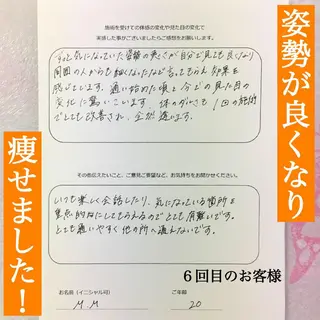 姿勢が良くなり
痩せました！
施術を受けての体感の変化や見た目の変化で
実感した事がございましたらご感想をお願いします。
ずっと気になっていた姿勢の悪さが自分で見ても良くなり
周囲の人からも細くなったなど言ってもらえ効果を
感じています。通い始めた頃と今との見た目の
変化に驚いています。体のダルさも1回の施術
でとても改善され、全然違います。
その他伝えたいこと、ご意見ご要望など、お気持ちをお聞かせください。
いつも楽しく会話したり、気になっている箇所を
重点的にしてもらえるのでとても有難いです。
とても通いやすく他の所へ通えないです。
6回目のお客様
お名前（イニシャル可）
ご年齢
M.M
20